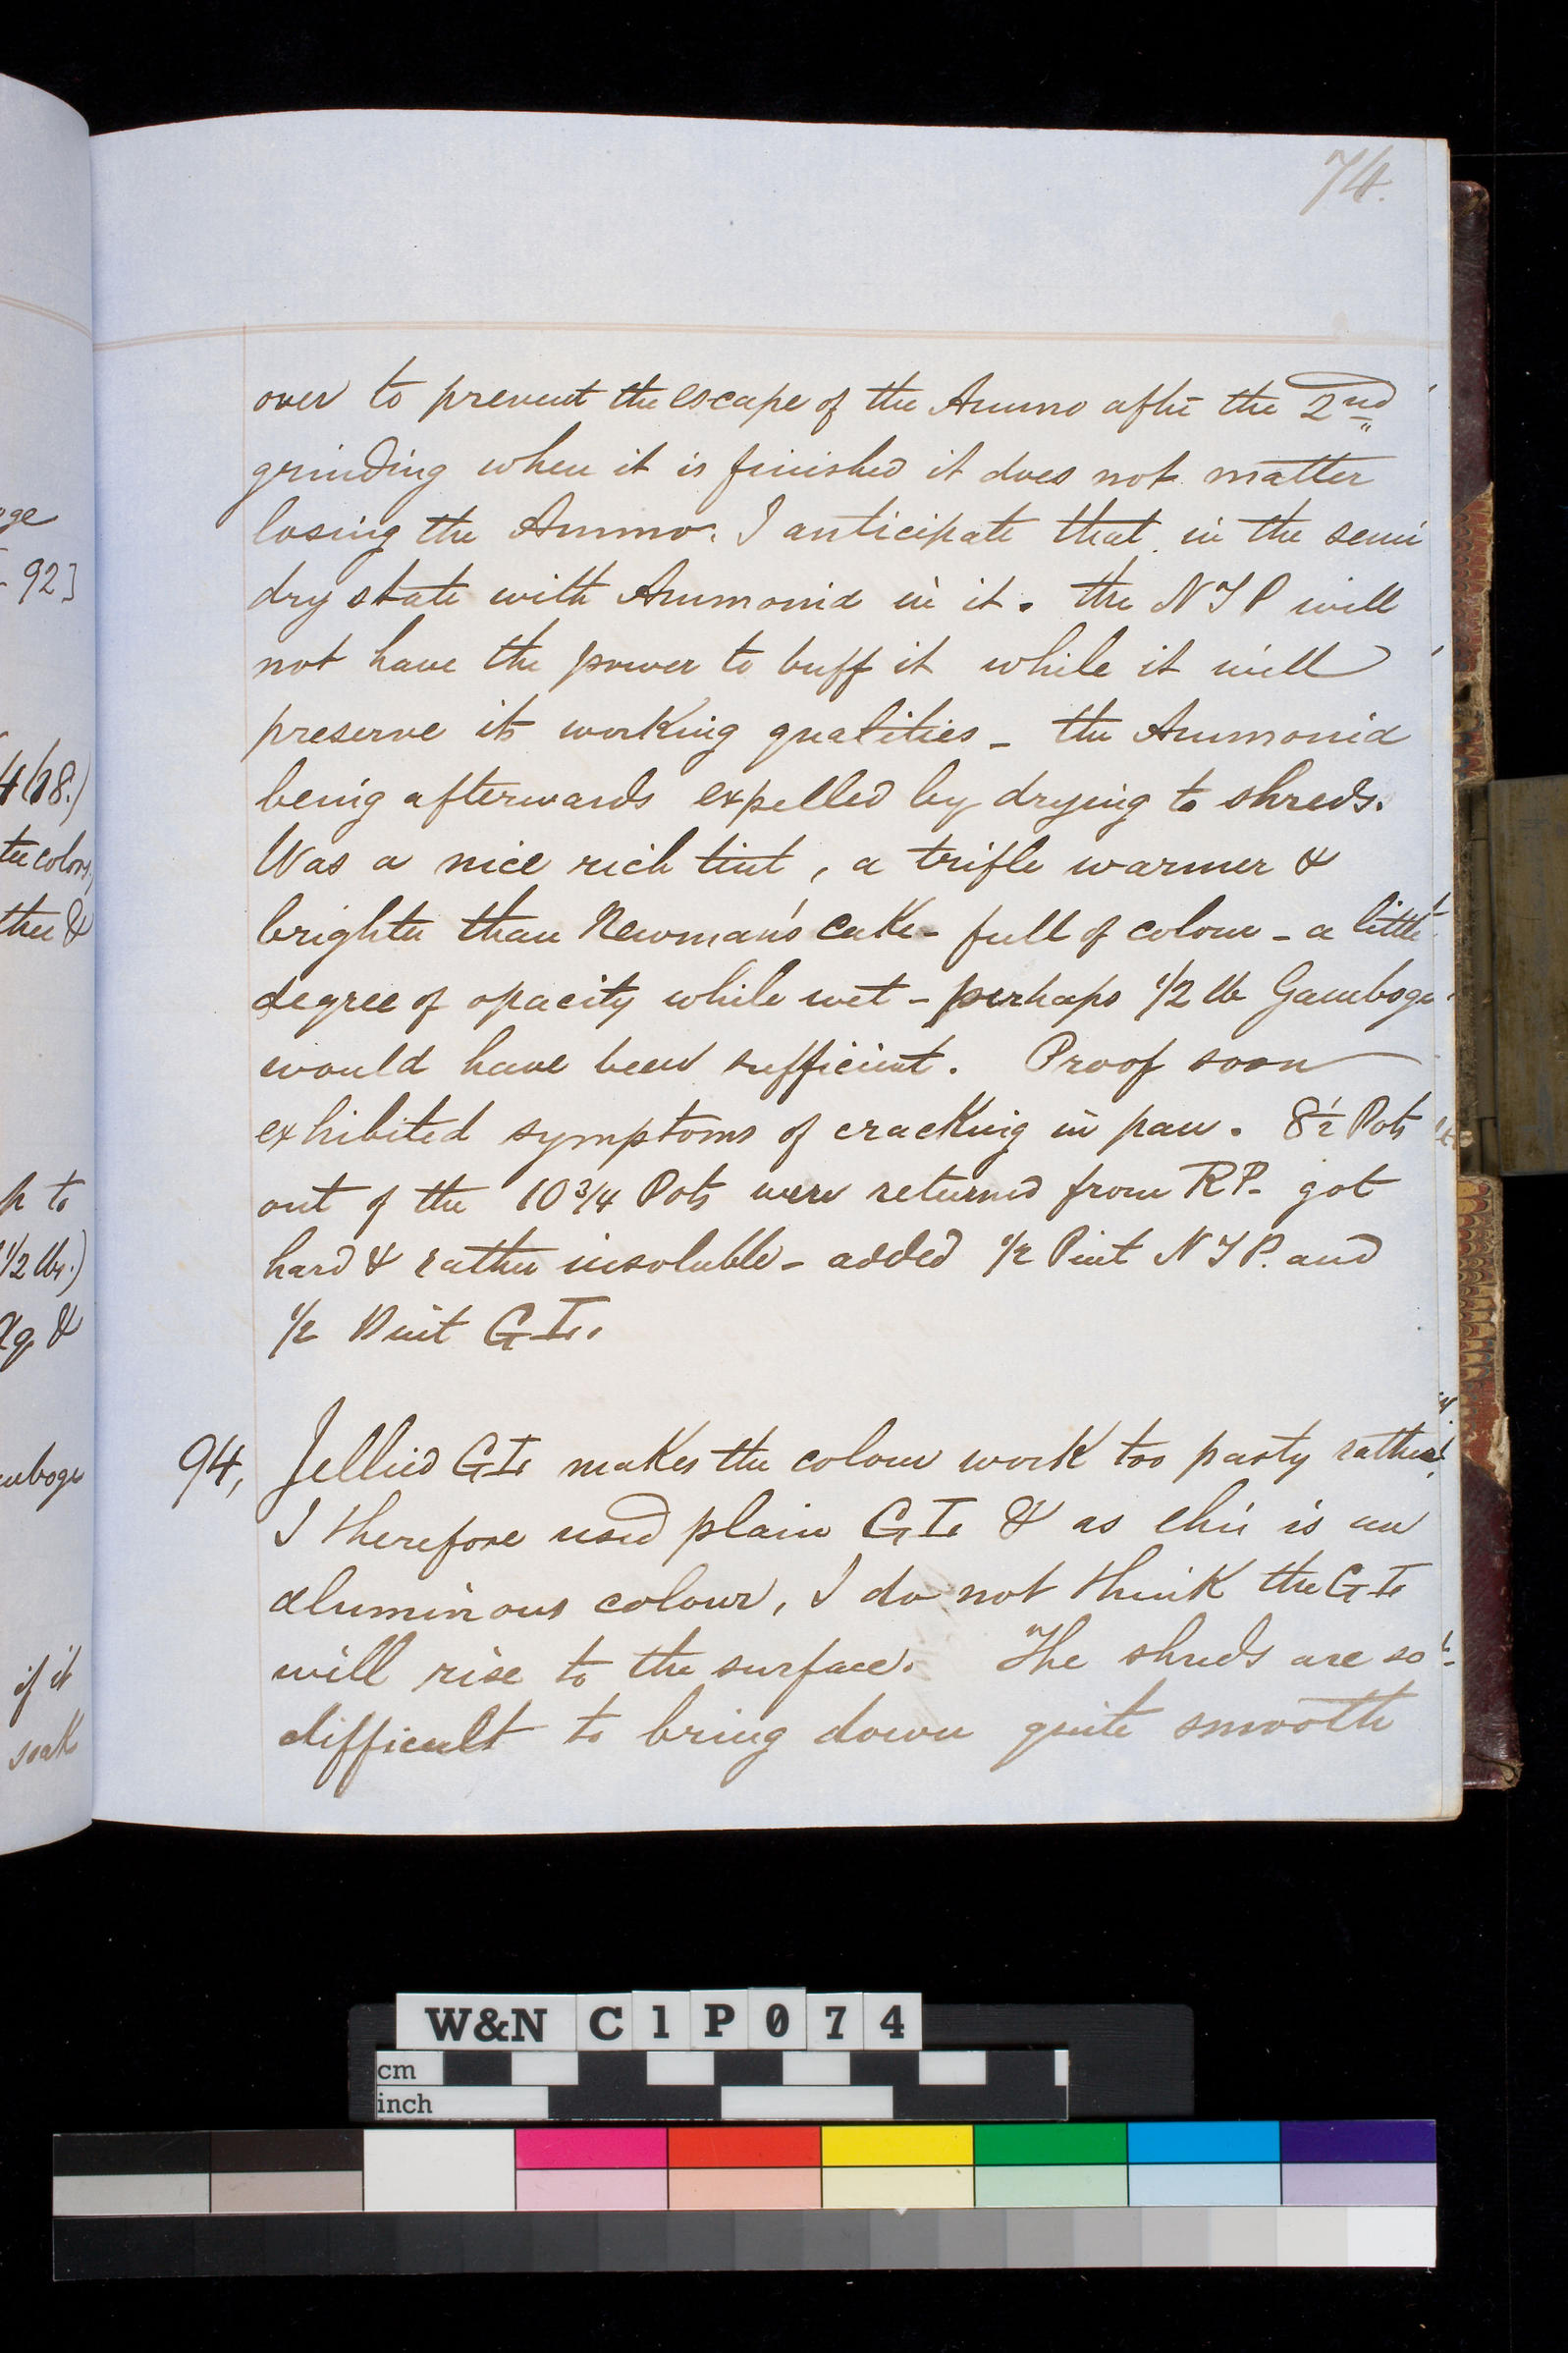 74.
over to prevent the escape of the Ammo after the 2nd
grinding when it is finished it does not matter
losing the Ammo. I anticipate that in the semi
dry state with Ammonia in it. the N T P will
not have the power to buff it while it will
preserve its working qualities _ the Ammonia
being afterwards expelled by drying to shreds.
Was a nice rich tint, a trifle warmer &
brighter than Newman's Cake - full of colour - a little
degree of opacity while wet - perhaps 1/2 lb Gamboge
would have been sufficient. Proof soon
exhibited symptoms of cracking in pan. 8½ Pots
out of the 10 3/4 Pots were returned from RP - got
hard & rather insoluble - added 1/2 Pint N T P. and
1/2 Pint G I.
94, Jellied G I makes the colour work too pasty rather
I therefore used plain G I & as this is an
aluminous colour, I do not think the G I
will rise to the surface. The shreds are so
difficult to bring down quite smooth
oge
92]
4/18.)
the colors,
ther &
1/2 lbs.)
amboge
if it
soak
W&N C1P074
cm
inch